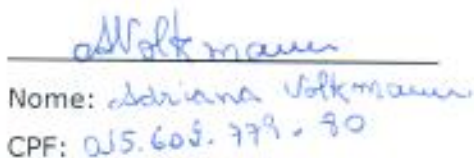 AVolkmann
Nome: Adriana Volkmann
CPF: 015.609.779-90